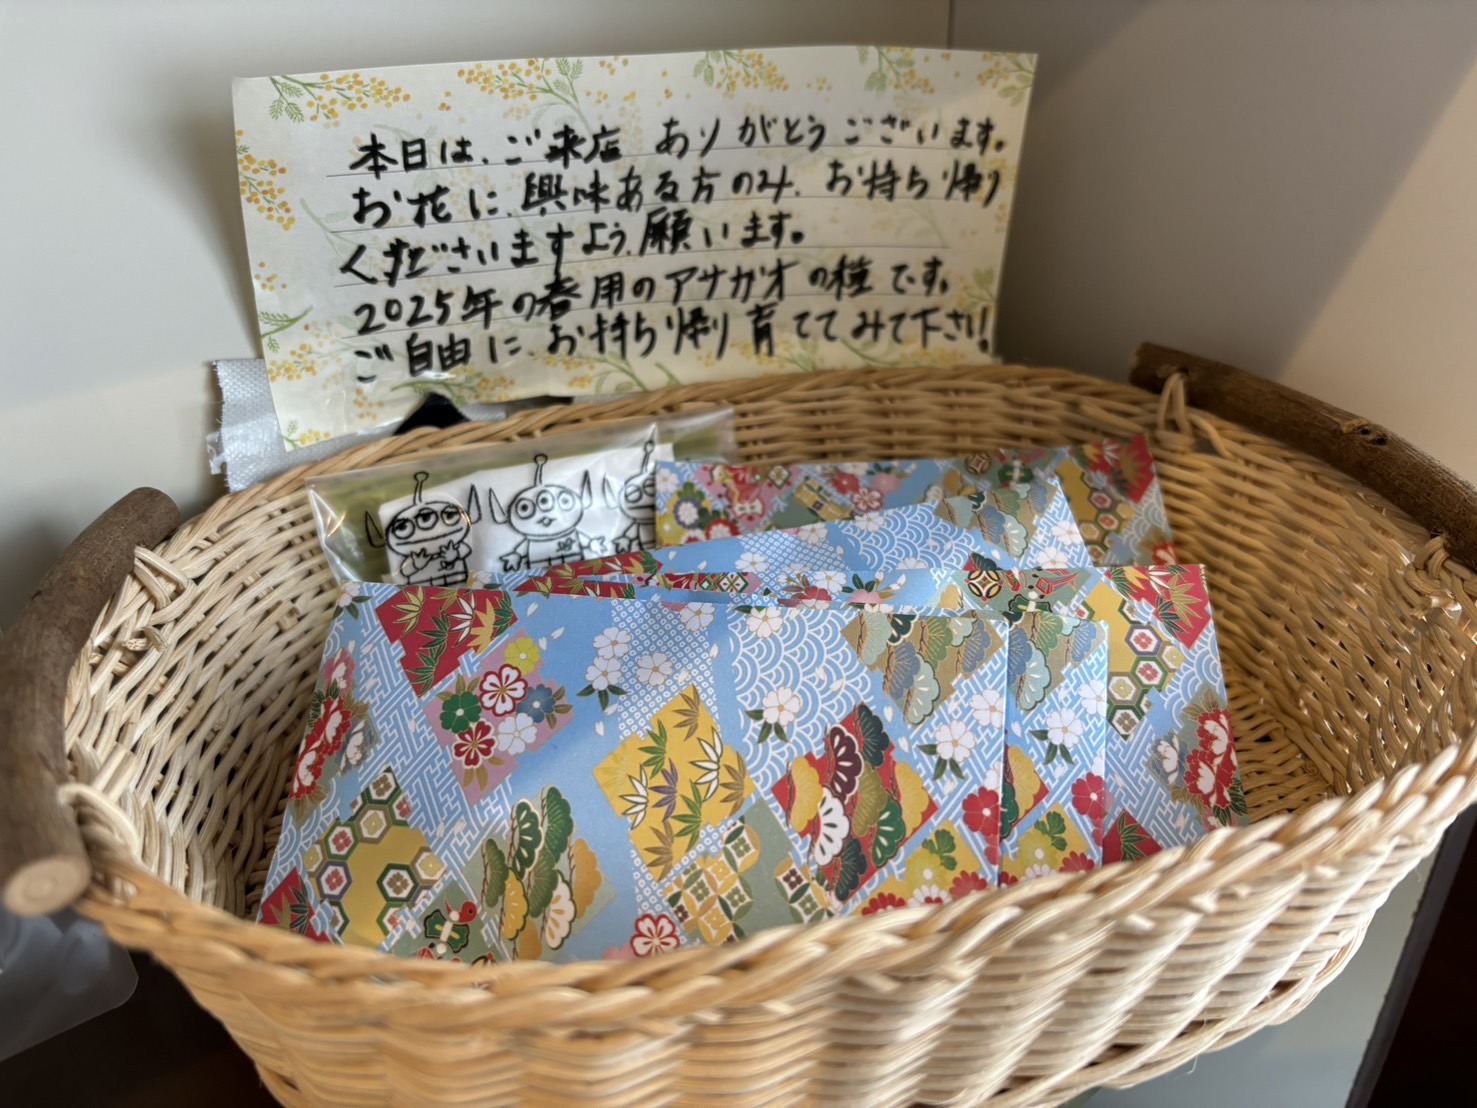 本日は、ご来店 ありがとうございます。
お花に、興味ある方のみ、お持ち帰り
くださいますよう、願います。
2025年の春用のアサガオの種です。
ご自由に、お持ち帰り育ててみて下さい!